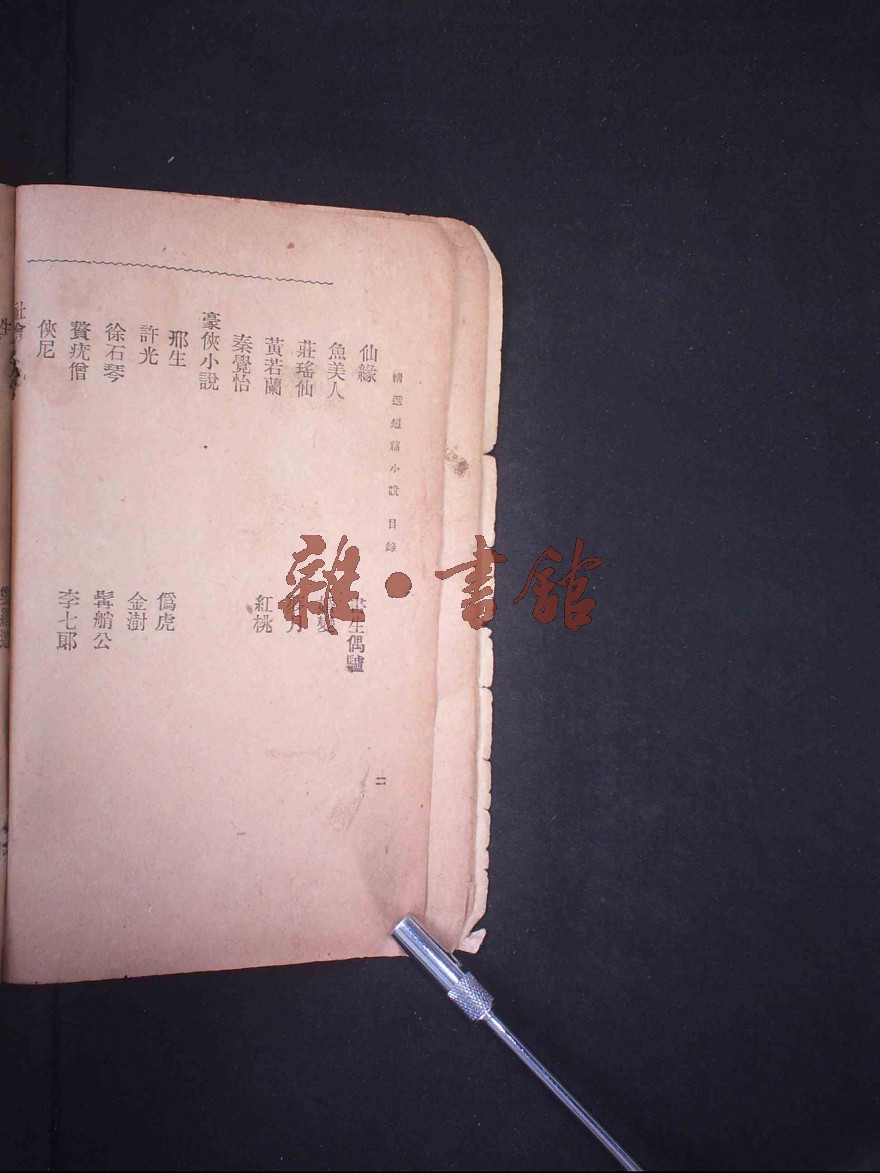 精選短篇小說 目錄
二
仙緣
書生偶驢
魚美人
莊瑤仙
月
黃若蘭
紅桃
秦覺怡
豪俠小說
邢生
僞虎
許光
金澍
徐石琴
髯艄公
贅疣僧
李七郎
俠尼
社會
雜·書館